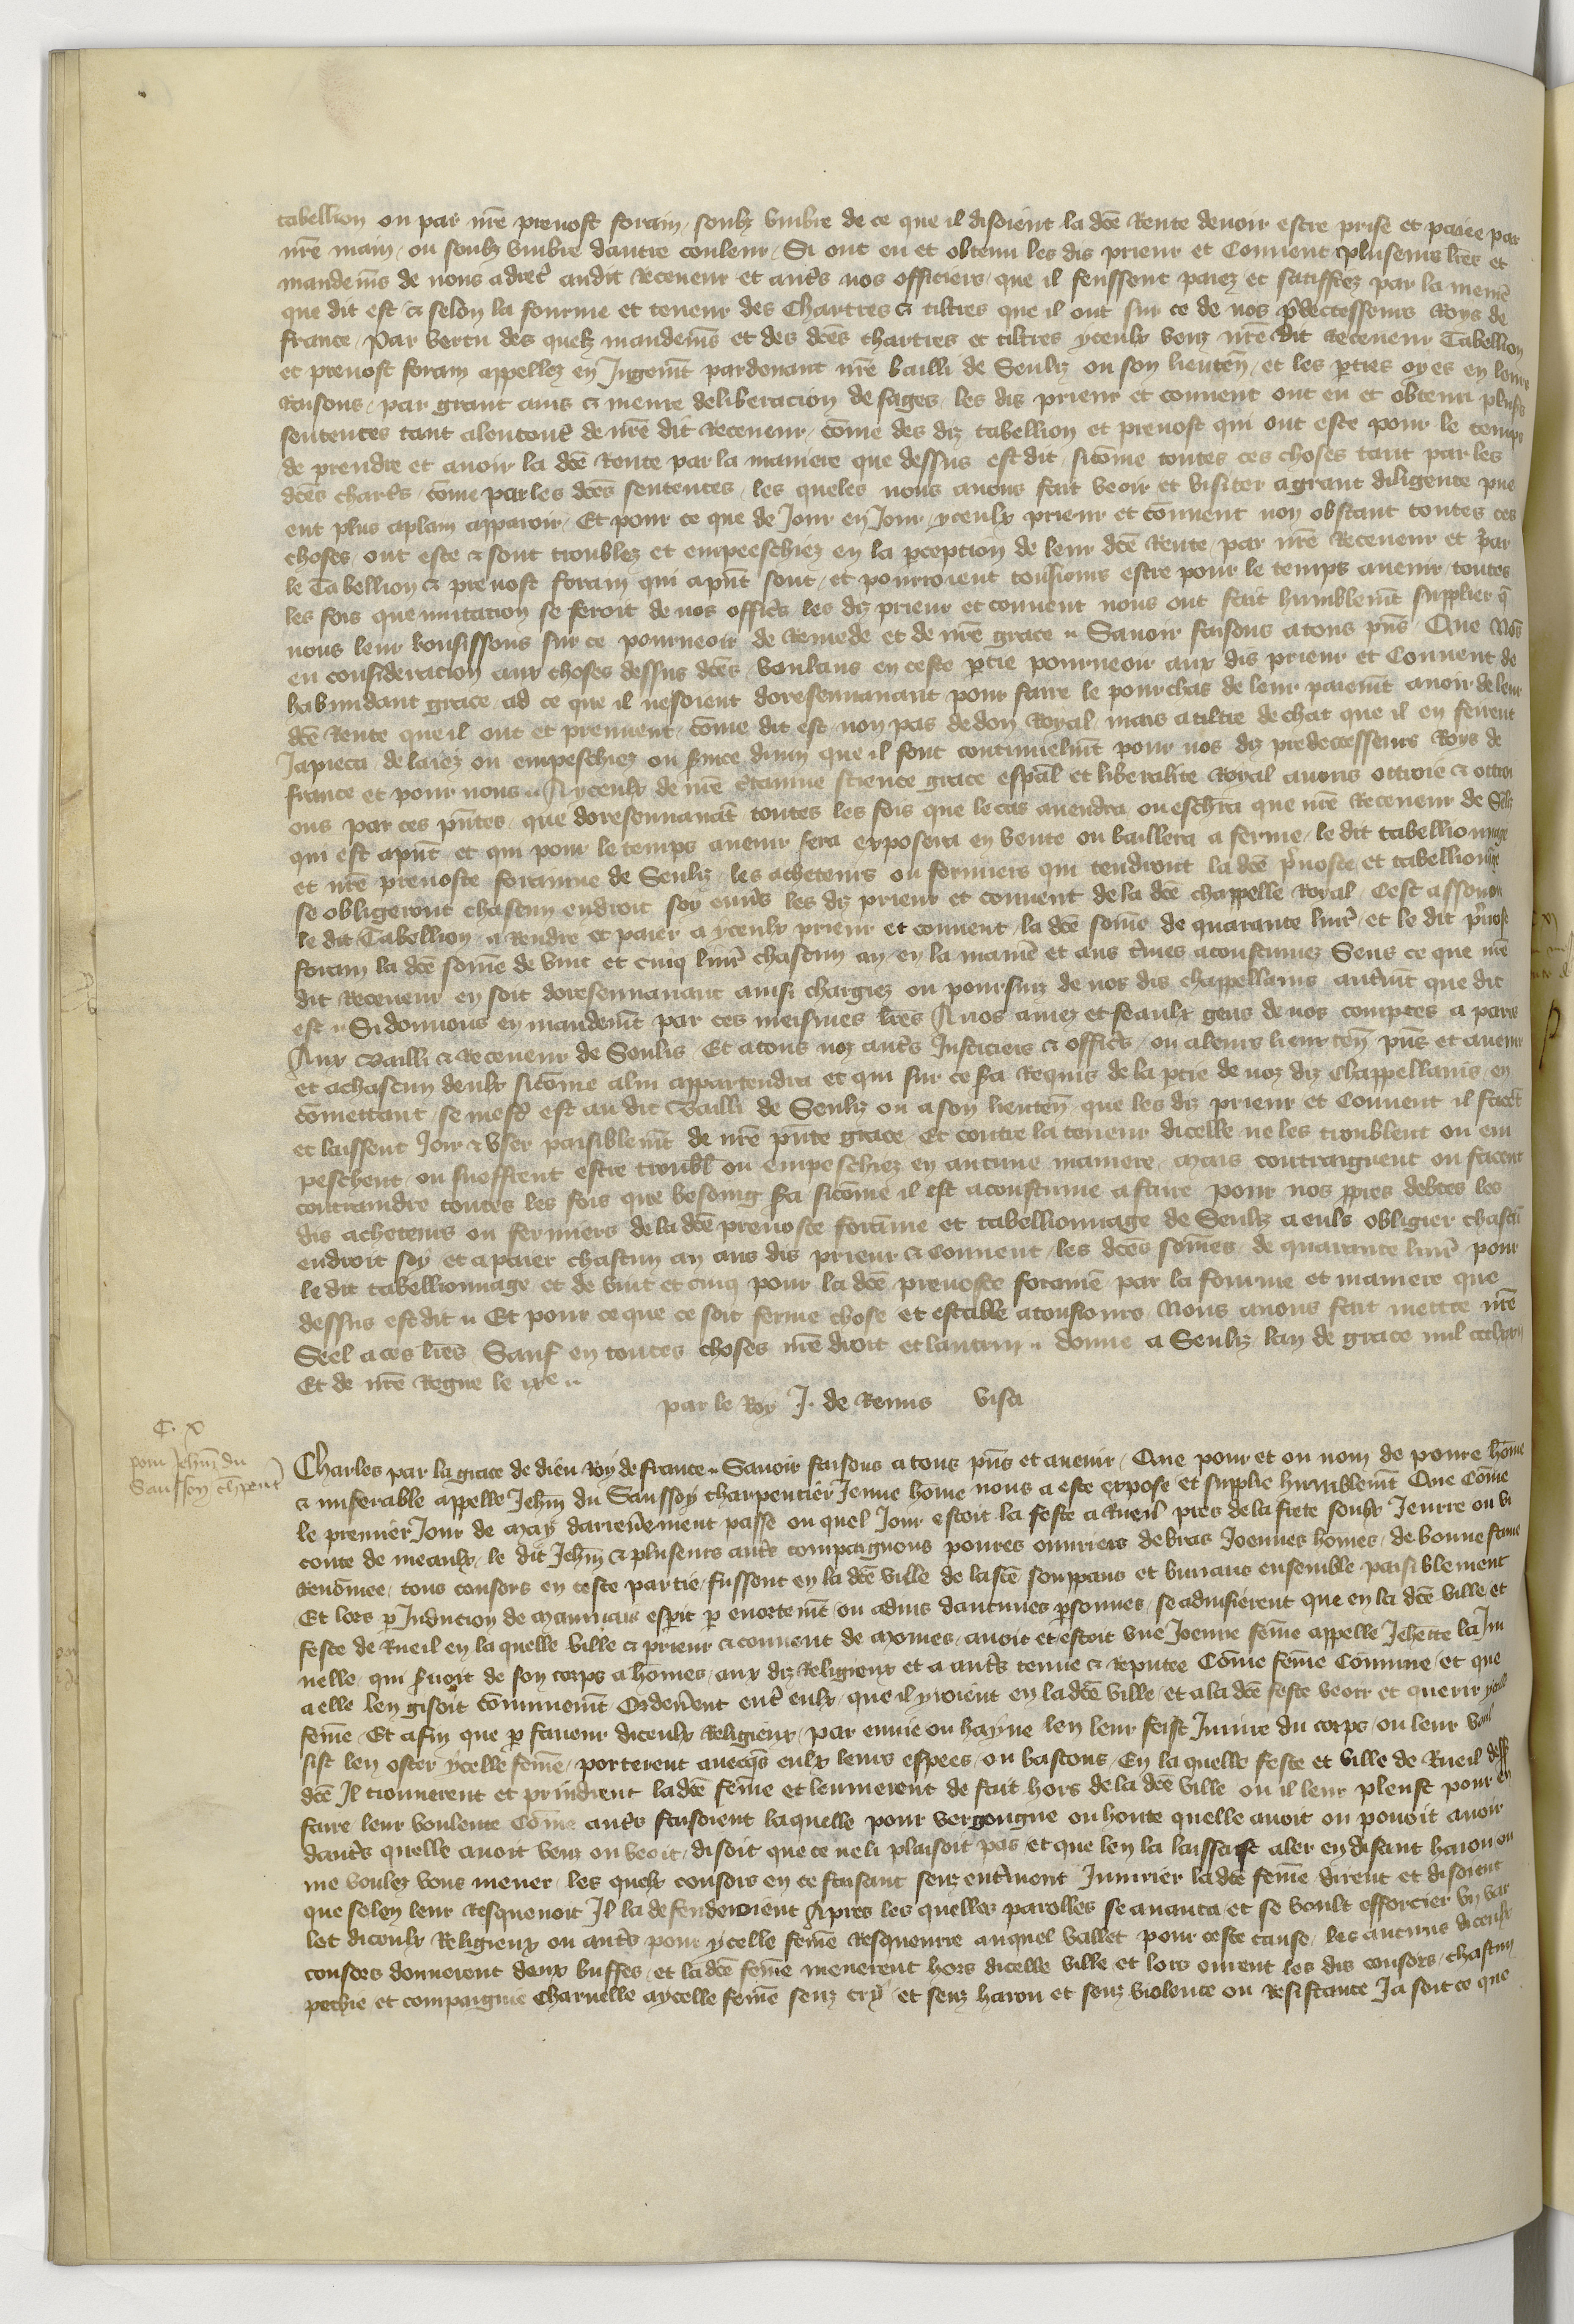 tabellion ou par nr̄e preuost forain, soubz vmbre de ce que il disoient la dc̄e Rente deuoir estre prise et paiee par
nr̄e main, ou soubz vmbre dautre couleur, Si ont eu et obtenu les dis prieur et Conuent pluseurs lr̄es et
mandem̄s de nous adrec̄ audit Receueur et aut̄s nos officiers, que il feussent paiez et satiffiez par la menie
que dit est, & selon la fourme et teneur des Chartres & tiltres que il ont sur ce de nos p̄decesseurs Roys de
france, Par vertu des quelz mandem̄s et des dc̄es chartres et tiltres yceulx veuz nr̄e dit Receueur Tabellion
et preuost forain appellez en Jugem̄t pardeuant nr̄e bailli de Senliz ou son lieuten̄, et les p̄ties oyes en leurs
Raisons, par grant auis & meure deliberacion de sages, les dis prieur et conuent ont eu et obtenu plus̄s
sentences tant alencont̄ de nr̄e dit Receueur, com̄e des diz tabellion et preuost qui ont este pour le temps
de prendre et auoir la dc̄e Rente par la maniere que dessus est dit, sicom̄e toutes ces choses tant par les
dc̄es chart̄s, com̄e par les dc̄es sentences, les queles nous auons fait veoir et visiter a grant diligence pue
ent plus aplain apparoir, Et pour ce que de Jour en Jour, yceulx prieur et conuent non obstant toutes ces
choses, ont este & sont troublez et empeeschiez en la p̄ception de leur dc̄e Rente, par nr̄e Receueur et par
le Tabellion & preuost forain qui ap̄nt sont, et pourroient tousiours estre pour le temps auenir, toutes
les fois que mutacion se feroit de nos offic̄s, les diz prieur et conuent nous ont fait humblem̄t supplier q̄
nous leur vousissons sur ce pourueoir de Remede et de nr̄e grace .. Sauoir faisons a tous p̄ns, Que Nos̄
en consideracion aux choses dessus dc̄es, voulans en ceste p̄tie pourueoir aux dis prieur et Conuent de
habundant grace, ad ce que il ne soient doresenauant pour faire le pourchas de leur paiem̄t auoir de leur
dc̄e Rente que il ont et prennent, com̄e dit est non pas de don Royal, mais a tiltre de chat que il en firent
Japieca, delaiez ou empeschiez ou s̄uice diuin que il font continuelm̄t pour nos diz predecesseurs Roys de
france et pour nous .. A yceulx de nr̄e c̄tainne science grace esp̄al et liberalite Royal auons ottroie & ottroi
ons par ces p̄ntes, que doresennauant, toutes les fois que le cas auendra ou escherra que nr̄e Receueur de Senliz
qui est ap̄nt et qui pour le temps auenir sera exposera en vente ou baillera a ferme, le dit tabellionnage
et nr̄e preuoste forainne de Senliz, les acheteurs ou fermiers qui tendront la dc̄e p̄uoste et tabellionnage
se obligeront chascun endroit soy enu̅s les diz prieur et conuent de la dc̄e chappelle Royal, Cest assauoir
le dit Tabellion, a Rendre et paier a yceulx prieur et conuent, la dc̄e som̄e de quarante liur̄, et le dit p̄uost
forain la dc̄e som̄e de vint et cinq liur̄ chascun an, en la manie et aus t̄mes acoustumez Sens ce que nr̄e
dit Receueur en soit doresennauant ainsi chargiez ou poursuiz de nos dis chappellains, autrem̄t que dit
est .. Si donnons en mandem̄t par ces meismes lr̄es A nos amez et feaulx gens de nos comptes a paris
Aux Bailli & Receueur de Senlis, Et a tous noz aut̄s Justiciers & offic̄s, ou a leurs lieuxten̄ p̄ns et auenir
et a chascun deulx sicom̄e a lui appartendra et qui sur ce s̄a Requis de la p̄tie de noz diz Chappellains, en
com̄ettant, se mest̄ est au dit Bailli de Senliz ou a son lieuten̄, que les diz prieur et Conuent il facēt
et laissent Joir & vser paisiblem̄t de nr̄e p̄nte grace, Et contre la teneur dicelle ne les troublent ou em
peschent, ou sueffrent estre troubl̄ ou empeschiez en aucune maniere, Mais contraignent ou facent
contraindre toutes les fois que besoing s̄a sicom̄e il est acoustume a faire pour nos pp̄res debtes les
dis acheteurs ou fermiers de la dc̄e preuoste forainne et tabellionnage de Senliz a euls obligier chascū
endroit soy, et a paier chascun an aus dis prieur & conuent, les dc̄es som̄es, de quarante liur̄ pour
le dit tabellionnage, et de vint et cinq pour la dc̄e preuoste forainē, par la fourme et maniere que
dessus est dit .. Et pour ce que ce soit ferme chose et estable a tousiours, Nous auons fait mettre nr̄e
Seel a ces lr̄es, Sauf en toutes choses nr̄e droit et lautrui .. donne a Senliz lan de grace mil ccclxxii
Et de nr̄e Regne le ixe ..
par le Roy J. de Remis visa
C. x
pour Jehan̄ du
Saussoy ch̄pent̄
Charles par la grace de dieu Roy de france .. Sauoir faisons a tous p̄ns et auenir, Que pour et ou nom de poure hom̄e
& miserable appelle Jehan̄ du Saussoy charpentier Jeune hom̄e nous a este expose et supplie humblem̄t Que Com̄e
le premier Jour de May darren̄ement passe ou quel Jour estoit la feste a Rueil pres de la ferte soubz Jeurre ou vi
conte de meaulx, le dit Jehan̄ & pluseurs aut̄s compaignons poures ouuriers de bras Joennes hom̄es, de bonne fame
Renom̄ee, tous consors en ceste partie, fussent en la dc̄e ville de la ferte souppans et buuans ensemble paisiblement
Et lors p̄ Induccion de mauuais esperit p̄ enortem̄t ou aduis daucunes p̄sonnes, se aduisierent que en la dc̄e ville et
feste de Rueil en la quelle ville a prieur & conuent de moines, auoit et estoit vne Joenne fem̄e appelle Jehan̄te la Ju
nelle, qui s̄uoit de son corps a hom̄es, aux diz Religieux et a aut̄s tenue & Reputee Com̄e fem̄e Com̄une, et que
a elle len gisoit com̄unem̄t Orden̄ent ent̄ eulx, que il yroient en la dc̄e ville, et a la dc̄e feste veoir et querir ycelle
fem̄e, Et afin que p̄ faueur diceulx Religieux, par enuie ou hayne len leur feist Iniure du corps, ou leur voul
sist len oster ycelle fem̄e, porterent auecq̄s eulx leurs espees, ou bastons, En la quelle feste et ville de Rueil dess̄
dc̄e Il trouuerent et prindrent la dc̄e fem̄e et lenmenerent de fait hors de la dc̄e ville ou il leur pleust pour en
faire leur voulente Com̄e aut̄s faisoient laquelle pour vergongne ou honte quelle auoit ou pouoit auoir
daut̄s quelle auoit veuz ou veoit, disoit que ce ne li plaisoit pas, et que len la laissast aler en disant harou ou
me voulez vous mener, les quelx consors en ce faisant senz ent̄ment Iniurier la dc̄e fem̄e dirent et disoient
que se len leur Resquenoit Il la defenderoient Apres les quelles parolles se auanca et se voult efforcier vn var
let diceulx Religieux ou aut̄s pour ycelle fem̄e Resqueurre auquel vallet pour ceste cause, les aucuns diceulx
consors donnerent deux buffes, et la dc̄e fem̄e menerent hors dicelle ville, et lors orrent les dis consors, chascun
pechie et compaignie Charnelle a ycelle fem̄e senz cry et senz harou et senz violence ou Resistance Ja soit ce que